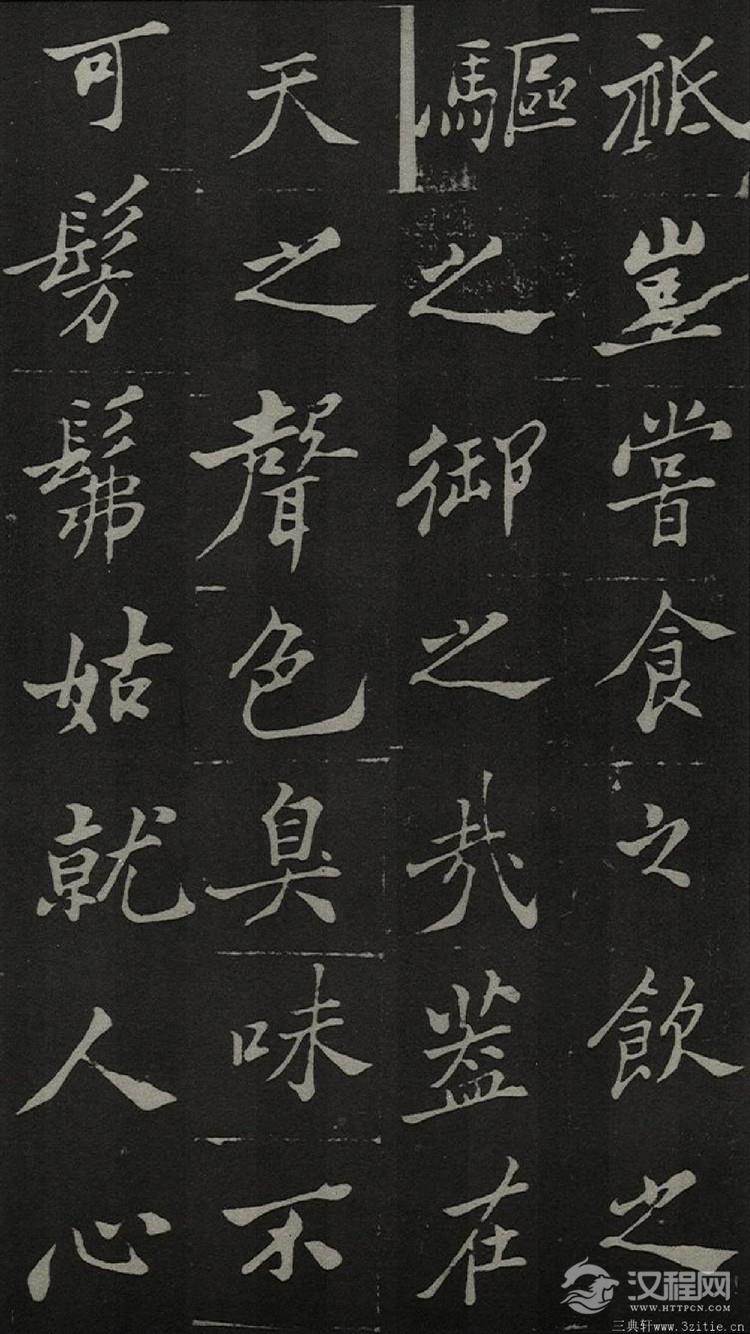 祗豈嘗食之飲之
驅之御之哉葢在
天之聲色臭味不
可髣髴姑就人心
汉程网
WWW.HTTPCN.COM
三典轩www.3zitie.cn